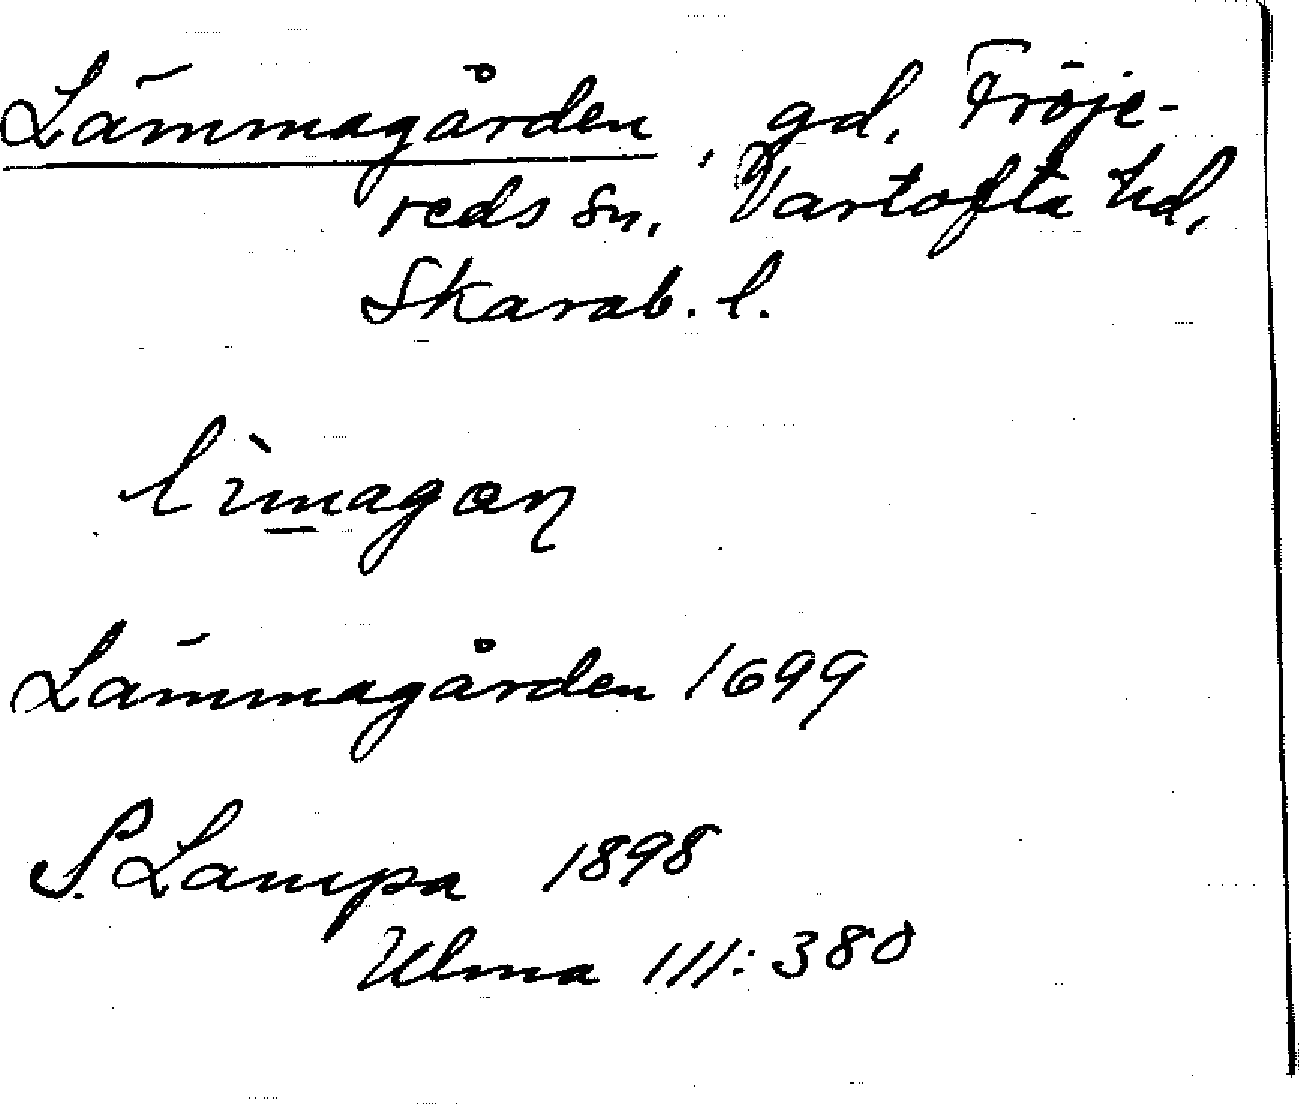 Lämmagården, gd, Fröje-
reds sn, Vartofta hd,
Skarab. l.
Lämmagården 1699
S. Lampa 1898
Ulma III:380